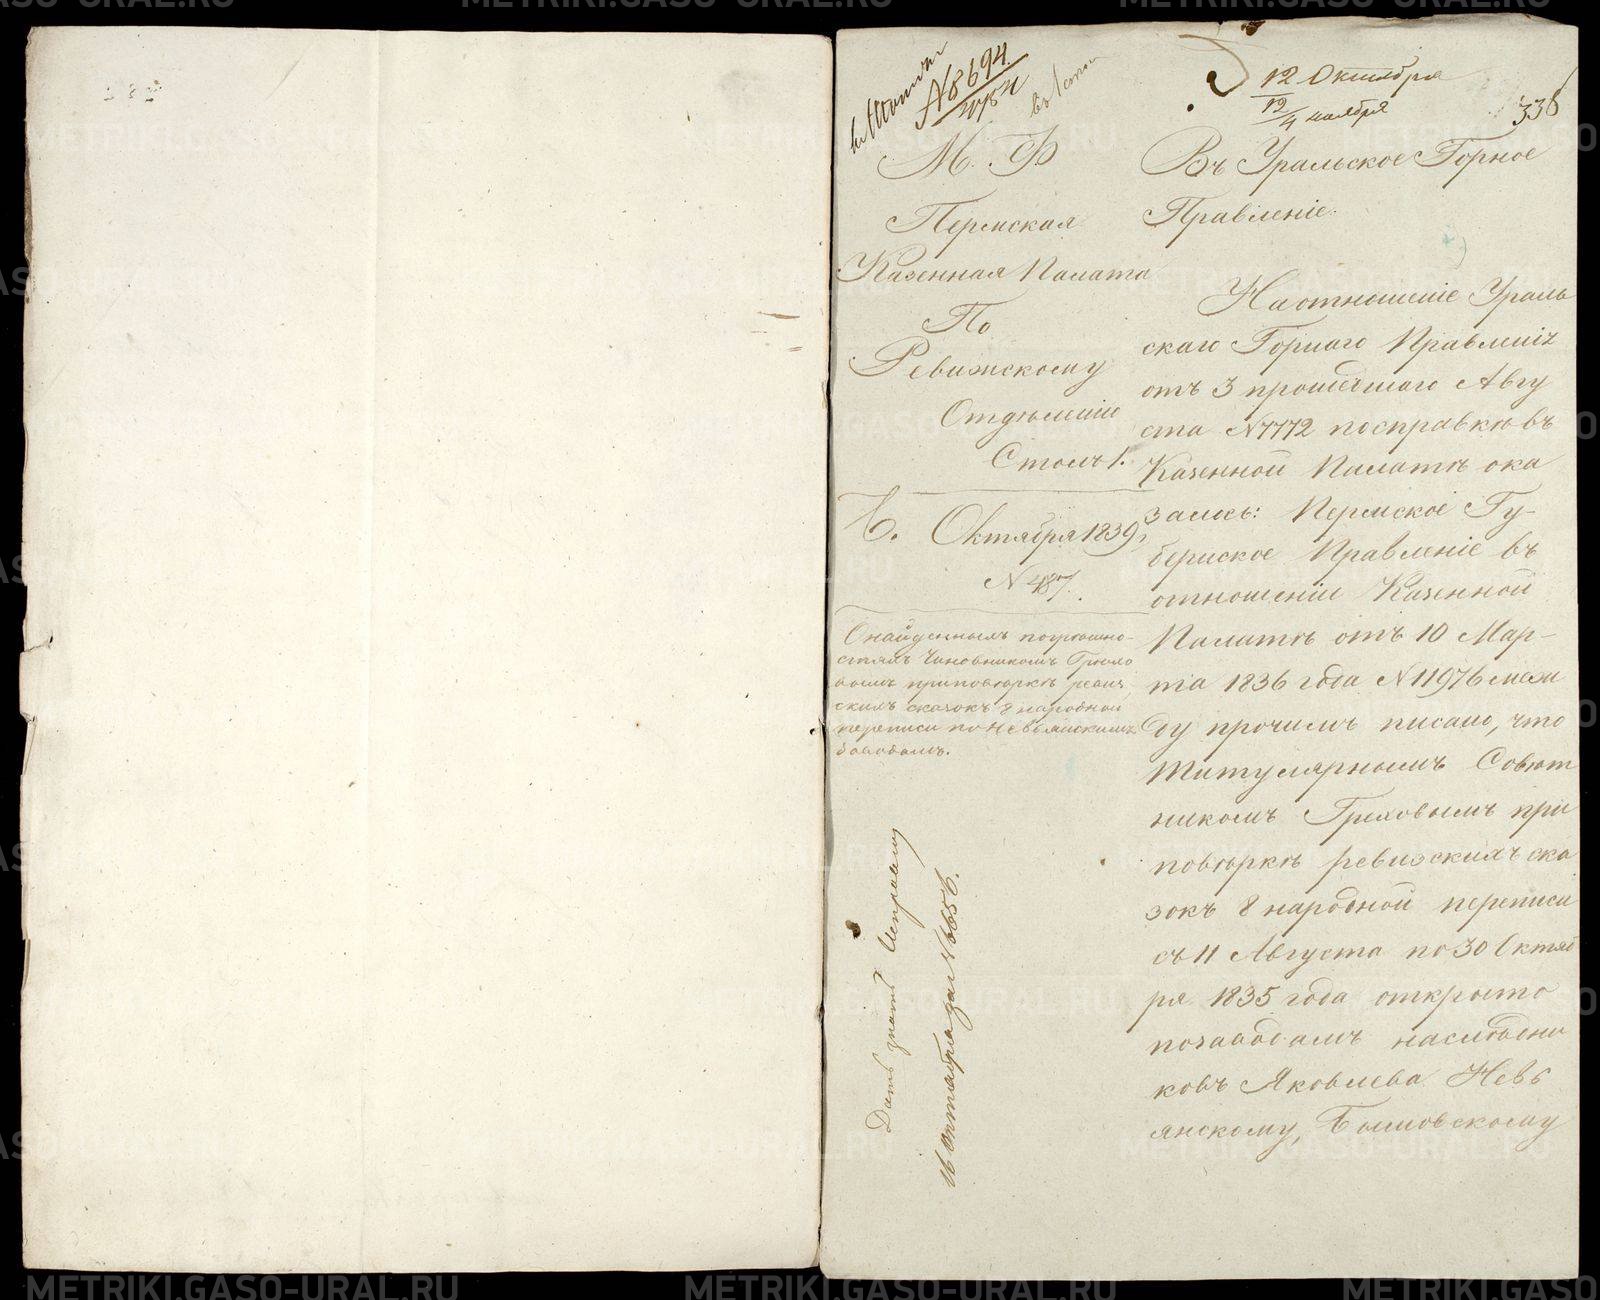 N 8694
12 Октября
12/4 ноября
336
М. Ф
Пермская
Казенная Палата
По
Ревижскому
Отдѣленію
Столъ 1.
6. Октября 1839,
N 487.
О найденныхъ погрѣшно-
стяхъ Чиновникомъ Грехо
вымъ приповѣркѣ ревиж
скихъ сказокъ 8 народной
переписи по Невьянскимъ
заводамъ.
Дать знать Исправнику
16 Октября за N 6656.
Въ Уральское Горное
Правленіе.
На отношеніе Ураль
скаго Горнаго Правленія
отъ 3 прошедшаго Авгу
ста N 7772 посправкѣ въ
Казенной Палатѣ ока
залось: Пермское Гу-
бернское Правленіе въ
отношеніи Казенной
Палатѣ отъ 10 Мар-
та 1836 года N 11976 меж
ду прочимъ писало, что
Титулярнымъ Совѣт
никомъ Греховымъ при
повѣркѣ ревизскихъ ска
зокъ 8 народной переписи
съ 11 Августа по 30 Октяб
ря 1835 года открыто
позаводамъ наслѣдни
ковъ Яковлева Невь
янскому, Быньговскому
METRIKI.GASO-URAL.RU